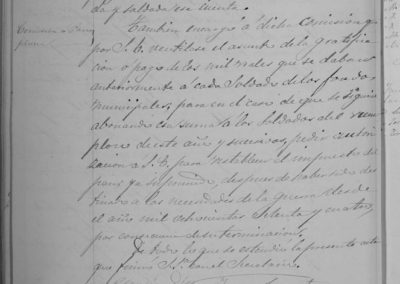 da y saldada esa cuenta.
Tambien encargó á dicha comision q.
por S. E. ventilase el asunto de la gratifi
cacion ó pago de los mil reales que se daban
anteriormente a cada Soldado de los fondos
Municipales, para en el caso de que se siguie
abonando esa suma a los Soldados del reem
plazo de este año y sucesivos, pedir autori
zacion a S. E. para restablecer el impuesto del
pan, ya suprimido, despues de haber sido des
tinado a las necesidades de la guerra desde
el año mil ochocientos setenta y cuatro,
por consecuencia determinacion.
De todo lo que se estendió la presente acta
que firmó S. S. con el Secretario.